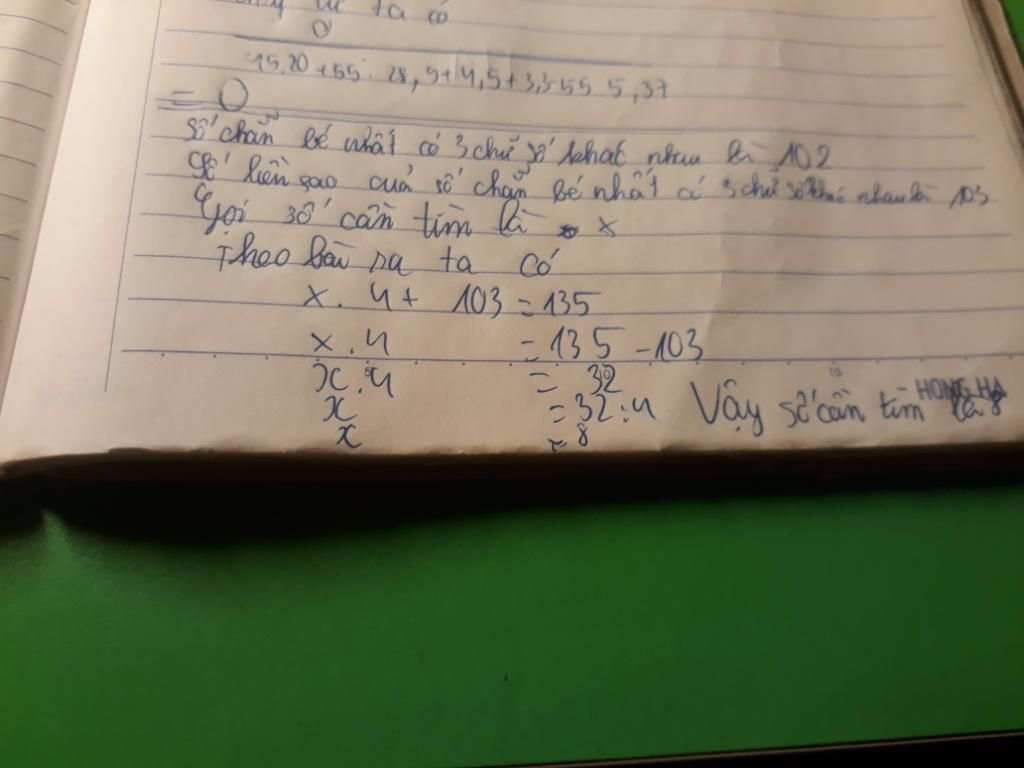 ta có
0
45.20+55. 28,9+4,5+3,3-55.5,37
= 0
Số chẵn bé nhất có 3 chữ số khác nhau là 102
Số liền sao cuả số chẵn bé nhất có 3 chữ số khác nhau là 103
Gọi số cần tìm là x
Theo bài ra ta có
x . 4 + 103 = 135
x . 4 = 135 - 103
x . 4 = 32
x = 32 : 4 Vậy số cần tìm là 8
x = 8
15
HONG HA